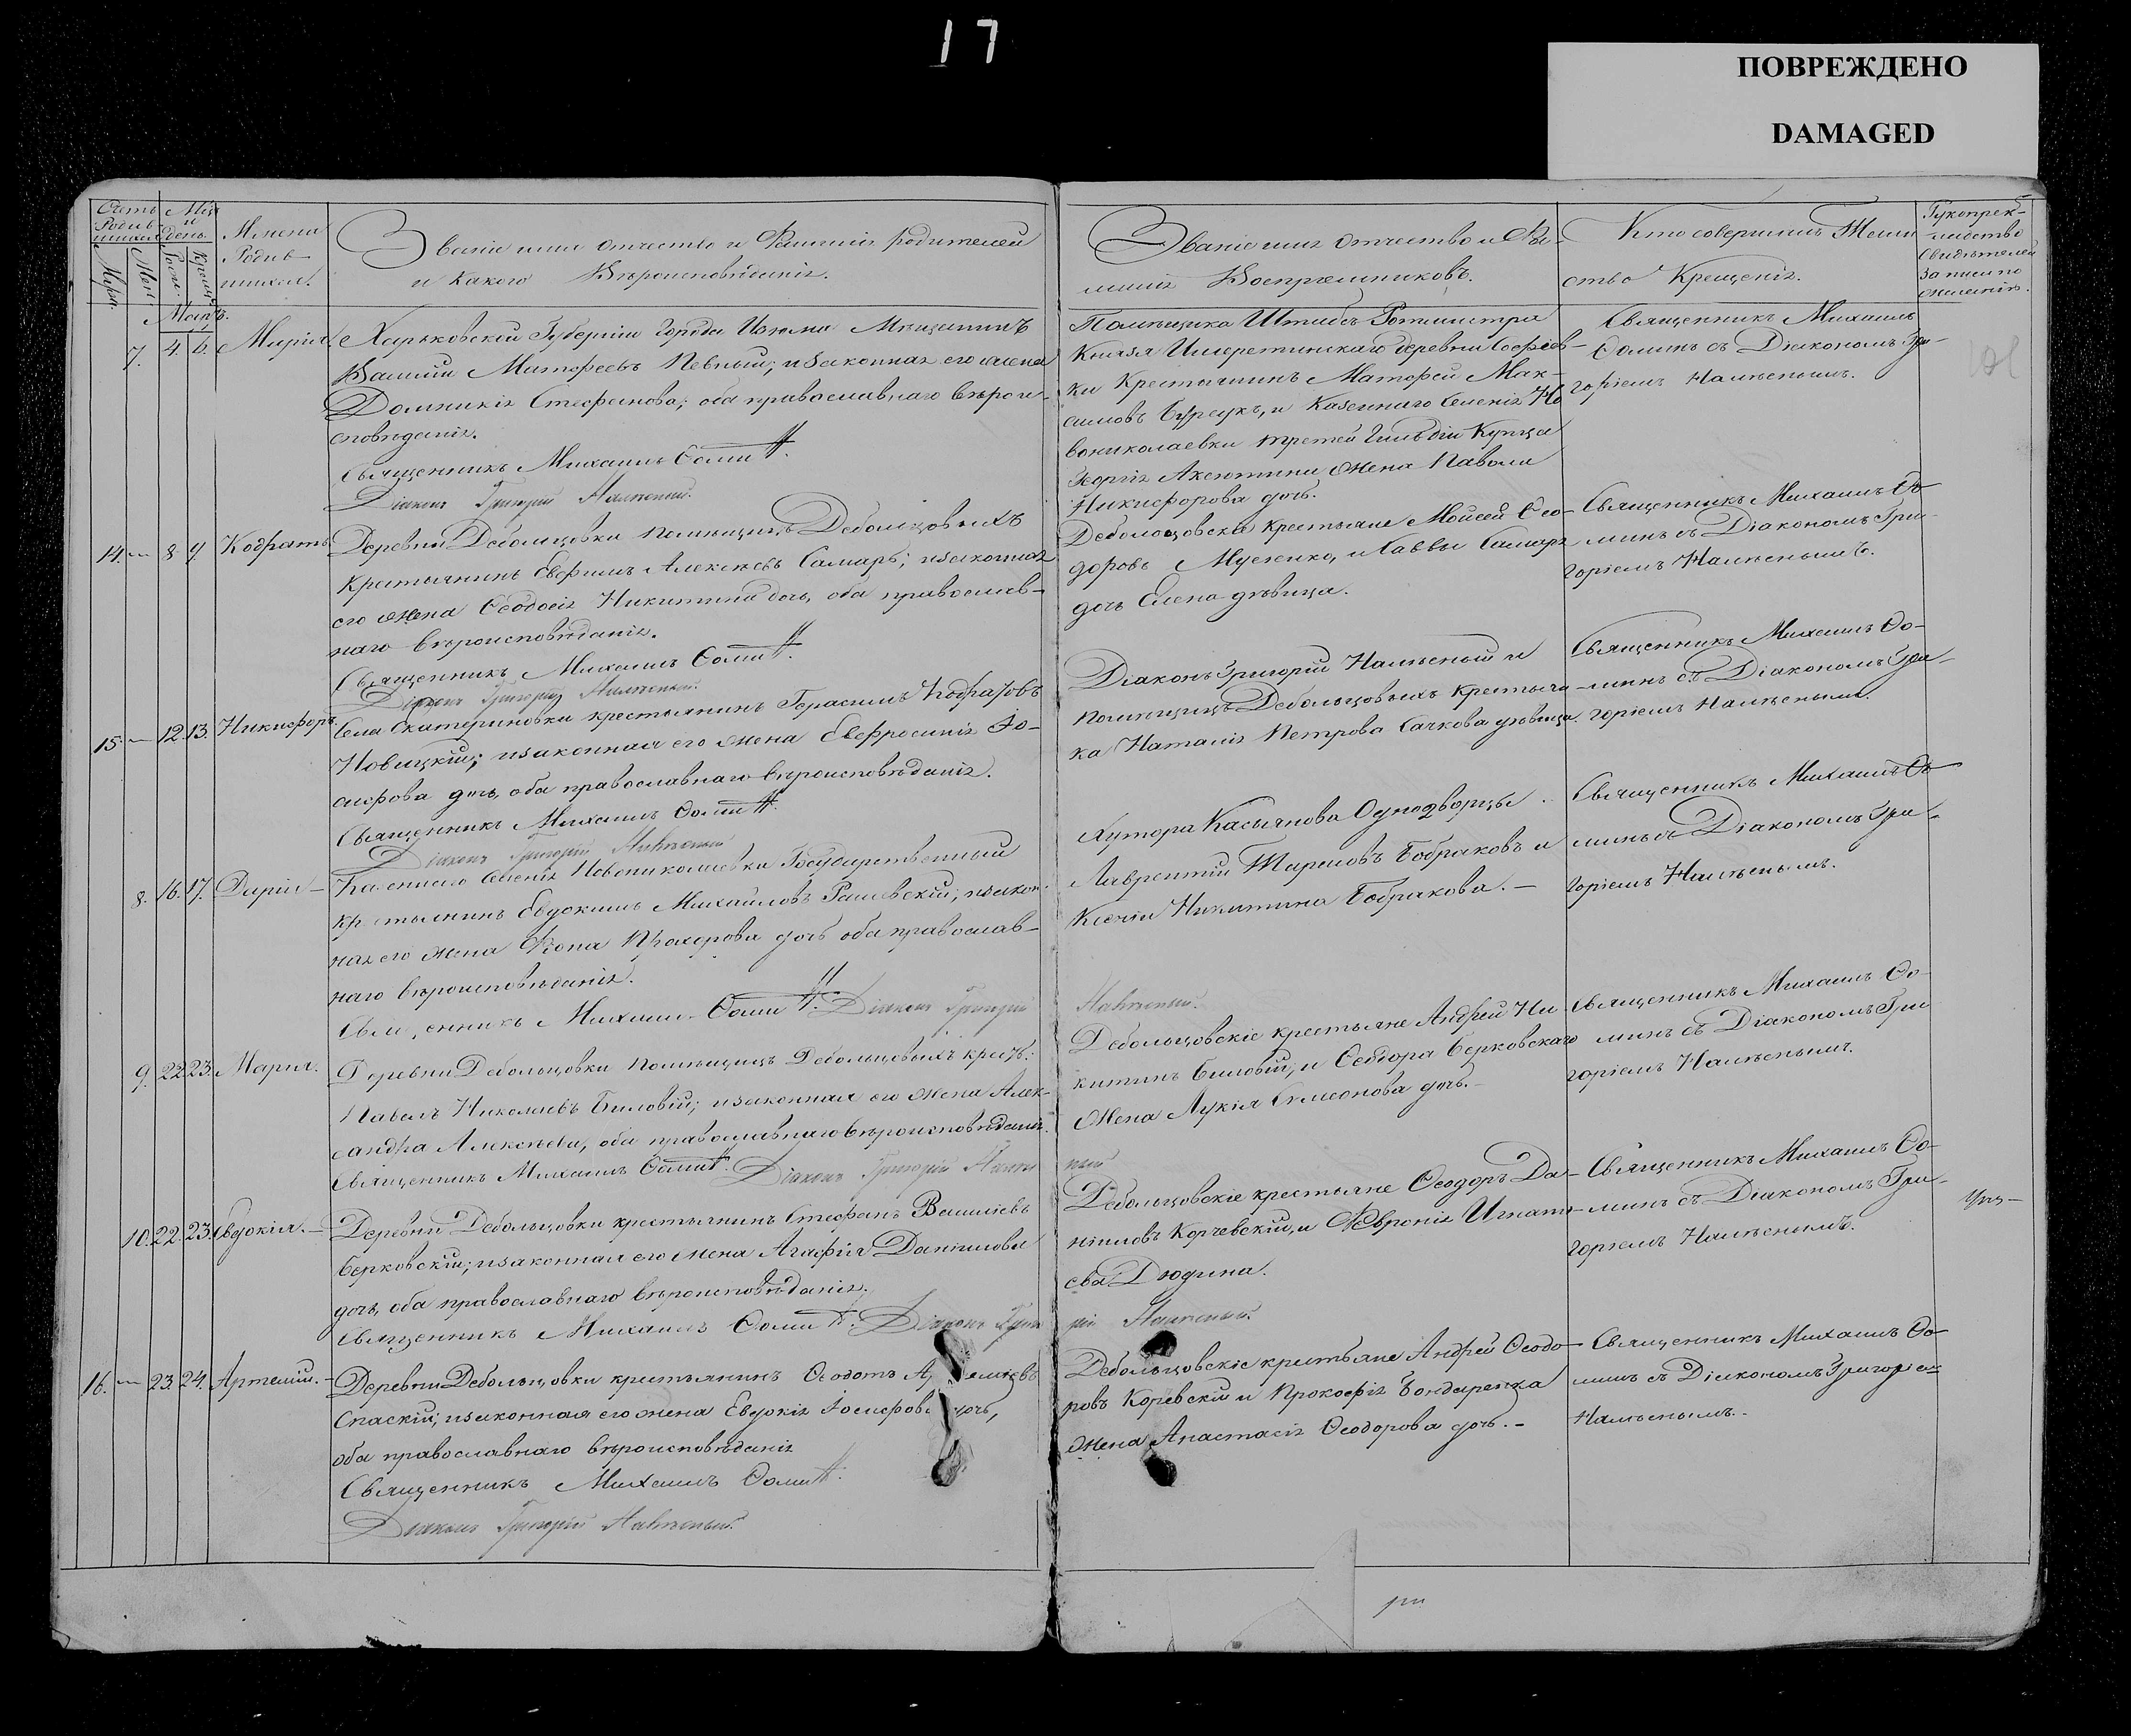 17
ПОВРЕЖДЕНО
DAMAGED
Счетъ Родившихся
Мужск.
Жен.
Мѣс. и день
Рожд.
Крещ.
Имена Родившихся.
Званіе имя отчество и Фамилія родителей
и какого Вѣроисповѣданія.
Званіе имя отчество и Фа-
милія Воспріемниковъ.
Кто совершилъ Таин
ство Крещенія.
Рукоприк-
ладство
свидѣтелей
записи по
желанію.
Мартъ.
7. 4. 6. Марія.
Харьковской Губерніи города Изюма Мѣщанинъ
Василій Матфеевъ Певный; и законная его жена
Домникія Стефанова; оба православнаго вѣрои-
сповѣданія.
Священникъ Михаилъ Ѳоминъ.
Діаконъ Григорій
Помѣщика Штабсъ Ротмистра
Князя Имеретинскаго деревни Софіев-
ки Крестьянинъ Матфей Мак-
симовъ Бурсукъ, и Казеннаго Селенія Но
вониколаевки третей Гильдіи Купца
Георгія Аксютина жена Павола
Никифорова дочь.
Священникъ Михаилъ
Ѳоминъ съ Діакономъ Гри-
горіемъ
14. — 8. 9. Кодратъ.
Деревни Дебольцовки помѣщицъ Дебольцовыхъ
крестьянинъ Евфимъ Алексѣевъ Самаръ; и законная
его жена Ѳеодосія Никитина дочь, оба православ-
наго вѣроисповѣданія.
Священникъ Михаилъ Ѳоминъ.
Діаконъ Григорій
Дебольцовскіе крестьяне Моисей Ѳео-
доровъ Мусіенко, и Саввы Самаря
дочь Елена дѣвица.
Священникъ Михаилъ Ѳо-
минъ съ Діакономъ Гри-
горіемъ
15. — 12. 13. Никифоръ.
Села Екатериновки крестьянинъ Герасимъ Кодратовъ
Новицкій; и законная его жена Евфросинія Іо-
сифова дочь, оба православнаго вѣроисповѣданія.
Священникъ Михаилъ Ѳоминъ.
Діаконъ Григорій
Діаконъ Григорій и
помѣщицъ Дебольцовыхъ крестьян-
ка Наталія Петрова Сачкова дѣвица.
Священникъ Михаилъ Ѳо-
минъ съ Діакономъ Гри-
горіемъ
8. 16. 17. Дарія —
Казеннаго Селенія Новониколаевки Государственный
крестьянинъ Евдокимъ Михайловъ Рашевскій; и закон-
ная его жена Прохорова дочь оба православ-
наго вѣроисповѣданія.
Священникъ Михаилъ Ѳоминъ. Діаконъ Григорій
Хутора Касьянова Однодворцы
Лаврентій Тарасовъ Бобраковъ и
Ксенія Никитина Бобракова. —
Священникъ Михаилъ Ѳо-
минъ съ Діакономъ Гри-
горіемъ
9. 22. 23. Марія.
Деревни Дебольцовки помѣщицъ Дебольцовыхъ крест.:
Павелъ Николаевъ Биловій; и законная его жена Алек-
сандра Алексѣева, оба православнаго вѣроисповѣданія.
Священникъ Михаилъ Ѳоминъ. Діаконъ Григорій
Дебольцовскіе крестьяне Андрей Ни
китинъ Биловій, и Ѳеодора Берковскаго
жена Лукія Симеонова дочь. —
Священникъ Михаилъ Ѳо-
минъ съ Діакономъ Гри
горіемъ
10. 22. 23. Евдокія. —
Деревни Дебольцовки крестьянинъ Стефанъ Василіевъ
Берковскій; и законная его жена Агафія Даніилова
дочь, оба православнаго вѣроисповѣданія.
Священникъ Михаилъ Ѳоминъ. Діаконъ Григо
Дебольцовскіе крестьяне Ѳеодоръ Да-
ніиловъ Корчевскій, и Февронія Игнатi-
ева Дюдина.
рій
Священникъ Михаилъ Ѳо-
минъ съ Діакономъ Гри-
горіемъ
16. — 23. 24. Артемій. —
Деревни Дебольцовки крестьянинъ Ѳеодотъ
Спаскій; и законная его жена Евдокія Іосифова дочь,
оба православнаго вѣроисповѣданія
Священникъ Михаилъ Ѳоминъ.
Діаконъ Григорій
Дебольцовскіе крестьяне Андрей Ѳеодо-
ровъ Корчевскій и Прокофія Бондаренка
жена Анастасія Ѳеодорова дочь. —
Священникъ Михаилъ Ѳо-
минъ съ Діакономъ Григоріе-